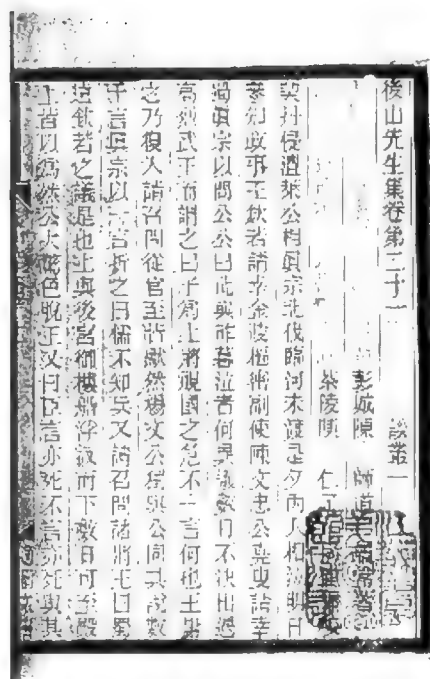 後山先生集卷第二十一 談叢一
彭城陳 師道
茶陵陳 仁子
契丹侵澶萊公相真宗北伐臨河未渡是夕內人相泣明日
參知政事王欽若請幸金陵樞密副使陳文忠公堯叟請幸
蜀真宗以問公公曰此與昨暮泣者何異議數日不決出遇
高烈武王而謂之曰子為上將視國之危不一言何也王謝
之乃復入請召問從官至皆默然楊文公獨與公同其說數
千言真宗以一言折之曰儒不知兵又請召問諸將王曰蜀
遠欽若之議是也上與後宮御樓船浮汳而下數日可至殿
上皆以為然公大驚色脫王又曰臣言亦死不言亦死與其